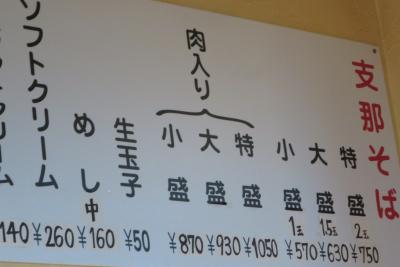 支那そば
特盛 2玉 ¥750
大盛 1.5玉 ¥630
小盛 1玉 ¥570
肉入り
特盛 ¥1050
大盛 ¥930
小盛 ¥870
生玉子 ¥50
めし中 ¥160
ソフトクリーム ¥260
140